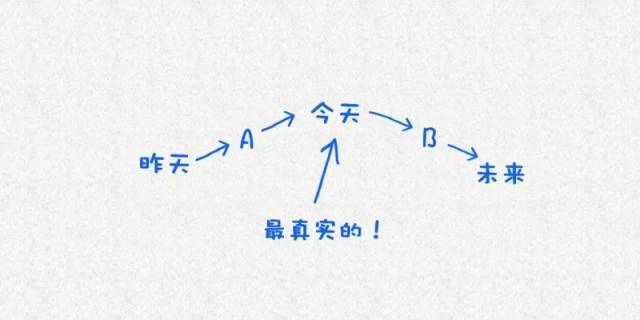 昨天
A
今天
B
未来
最真实的！